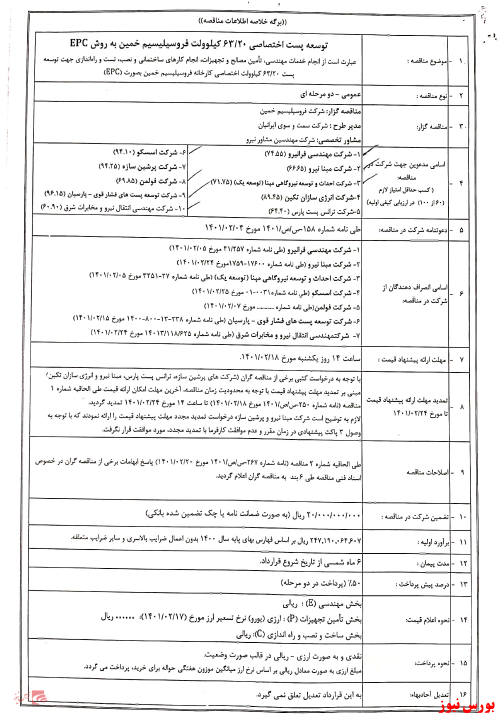 ((برگه خلاصه اطلاعات مناقصه))
۱- موضوع مناقصه :
توسعه پست اختصاصی ۶۳/۲۰ کیلوولت فروسیلیسیم خمین به روش EPC
عبارت است از انجام خدمات مهندسی، تأمین مصالح و تجهیزات، انجام کارهای ساختمانی و نصب، تست و راه‌اندازی جهت توسعه
پست ۶۳/۲۰ کیلوولت اختصاصی کارخانه فروسیلیسیم خمین بصورت (EPC)
۲- نوع مناقصه :
عمومی - دو مرحله ای
۳- مناقصه گزار:
مناقصه گزار: شرکت فروسیلیسیم خمین
مدیر طرح : شرکت سمت و سوی ایرانیان
مشاور تخصصی: شرکت مهندسین مشاور نیرو
۴- اسامی مدعوین جهت شرکت در
مناقصه:
( کسب حداقل امتیاز لازم
(۶۰ از ۱۰۰) در ارزیابی کیفی اولیه)
۱- شرکت مهندسی فرانیرو (۷۴.۵۵)
۲- شرکت مبنا نیرو (۶۶.۶۵)
۳- شرکت احداث و توسعه نیروگاهی مپنا (توسعه یک) (۷۱.۷۵)
۴- شرکت انرژی سازان تکین (۸۹.۴۵)
۵- شرکت ترانس پست پارس (۶۴.۴۰)
۶- شرکت اسسکو (۹۴.۱۰)
۷- شرکت پرشین سازه (۹۴.۲۵)
۸- شرکت فولمن (۶۹.۸۵)
۹- شرکت توسعه پست های فشار قوی - پارسیان (۹۶.۱۵)
۱۰- شرکت مهندسی انتقال نیرو و مخابرات شرق (۶۰.۹۰)
۵- دعوتنامه شرکت در مناقصه:
طی نامه شماره ۱۵۸-س/ص/۱۴۰۱ مورخ ۱۴۰۱/۰۲/۰۴
۶- اسامی انصراف دهندگان از
شرکت در مناقصه:
۱- شرکت مهندسی فرانیرو (طی نامه شماره ۲۱/۲۵۷ مورخ ۱۴۰۱/۰۲/۰۵)
۲- شرکت مبنا نیرو (طی نامه شماره ۱۷۶۰۰-۱۷۵۹ مورخ ۱۴۰۱/۰۲/۲۴)
۳- شرکت احداث و توسعه نیروگاهی مپنا (توسعه یک) (طی نامه شماره ۲۷-۳۲۵۱ مورخ ۱۴۰۱/۰۲/۰۵)
۴- شرکت اسسکو (طی نامه شماره مورخ ۱۴۰۱/۰۲/۲۵)
۵- شرکت فولمن (طی نامه شماره ........ مورخ ۱۴۰۱/۰۲/۰۷)
۶- شرکت توسعه پست های فشار قوی - پارسیان (طی نامه شماره مورخ ۱۴۰۱/۰۲/۱۵)
۷- شرکت مهندسی انتقال نیرو و مخابرات شرق (طی نامه شماره مورخ ۱۴۰۱/۰۲/۲۴)
۷- مهلت ارائه پیشنهاد قیمت :
ساعت ۱۴ روز یکشنبه مورخ ۱۴۰۱/۰۲/۱۸
۸- تمدید مهلت ارائه پیشنهاد قیمت
تا مورخ ۱۴۰۱/۰۲/۲۴
با توجه به درخواست کتبی برخی از مناقصه گران (شرکت های پرشین سازه، ترانس پست پارس، مبنا نیرو و انرژی سازان تکین)
مبنی بر تمدید مهلت پیشنهاد قیمت با توجه به محدودیت زمان مناقصه، آخرین مهلت امکان ارائه قیمت طی الحاقیه شماره ۱
مناقصه (نامه شماره ۲۵۰-س/ص/۱۴۰۱ مورخ ۱۴۰۱/۰۲/۱۸) تا ساعت ۱۴ مورخ ۱۴۰۱/۰۲/۲۴ تمدید گردید.
لازم به توضیح است شرکت مبنا نیرو و پرشین سازه درخواست تمدید مجدد مهلت پیشنهاد قیمت را ارائه نمودند که با توجه به
وصول ۳ پاکت پیشنهادی در زمان مقرر و عدم موافقت کارفرما با تمدید مجدد، مورد موافقت قرار نگرفت.
۹- اصلاحات مناقصه
طی الحاقیه شماره ۲ مناقصه (نامه شماره ۲۶۷-س/ص/۱۴۰۱ مورخ ۱۴۰۱/۰۲/۲۰) پاسخ ابهامات برخی از مناقصه گران در خصوص
اسناد فنی مناقصه طی ۶ بند به مناقصه گران اعلام گردید.
۱۰- تضمین شرکت در مناقصه :
۲۰/۰۰۰/۰۰۰/۰۰۰ ریال (به صورت ضمانت نامه یا چک تضمین شده بانکی)
۱۱- برآورد اولیه :
۲۴۷,۱۹۰,۰۶۴,۶۰۷ ریال بر اساس فهارس بهای پایه سال ۱۴۰۰ بدون اعمال ضرایب بالاسری و سایر ضرایب متعلقه.
۱۲- مدت پیمان :
۶ ماه شمسی از تاریخ شروع قرارداد.
۱۳- درصد پیش پرداخت :
۵۰٪ (پرداخت در دو مرحله)
۱۴- نحوه اعلام قیمت:
بخش مهندسی (E) : ریالی
بخش تأمین تجهیزات (P) : ارزی (یورو) نرخ تسعیر ارز مورخ (۱۴۰۱/۰۲/۱۷): ...... ریال
بخش ساخت و نصب و راه اندازی (C): ریالی
۱۵- نحوه پرداخت:
نقدی و به صورت ارزی - ریالی در قالب صورت وضعیت.
مبلغ ارزی به صورت معادل ریالی بر اساس نرخ ارز میانگین موزون هفتگی حواله برای خرید، پرداخت می گردد.
۱۶- تعدیل آحادبهاء:
به این قرارداد تعدیل تعلق نمی گیرد.
بورس نیوز